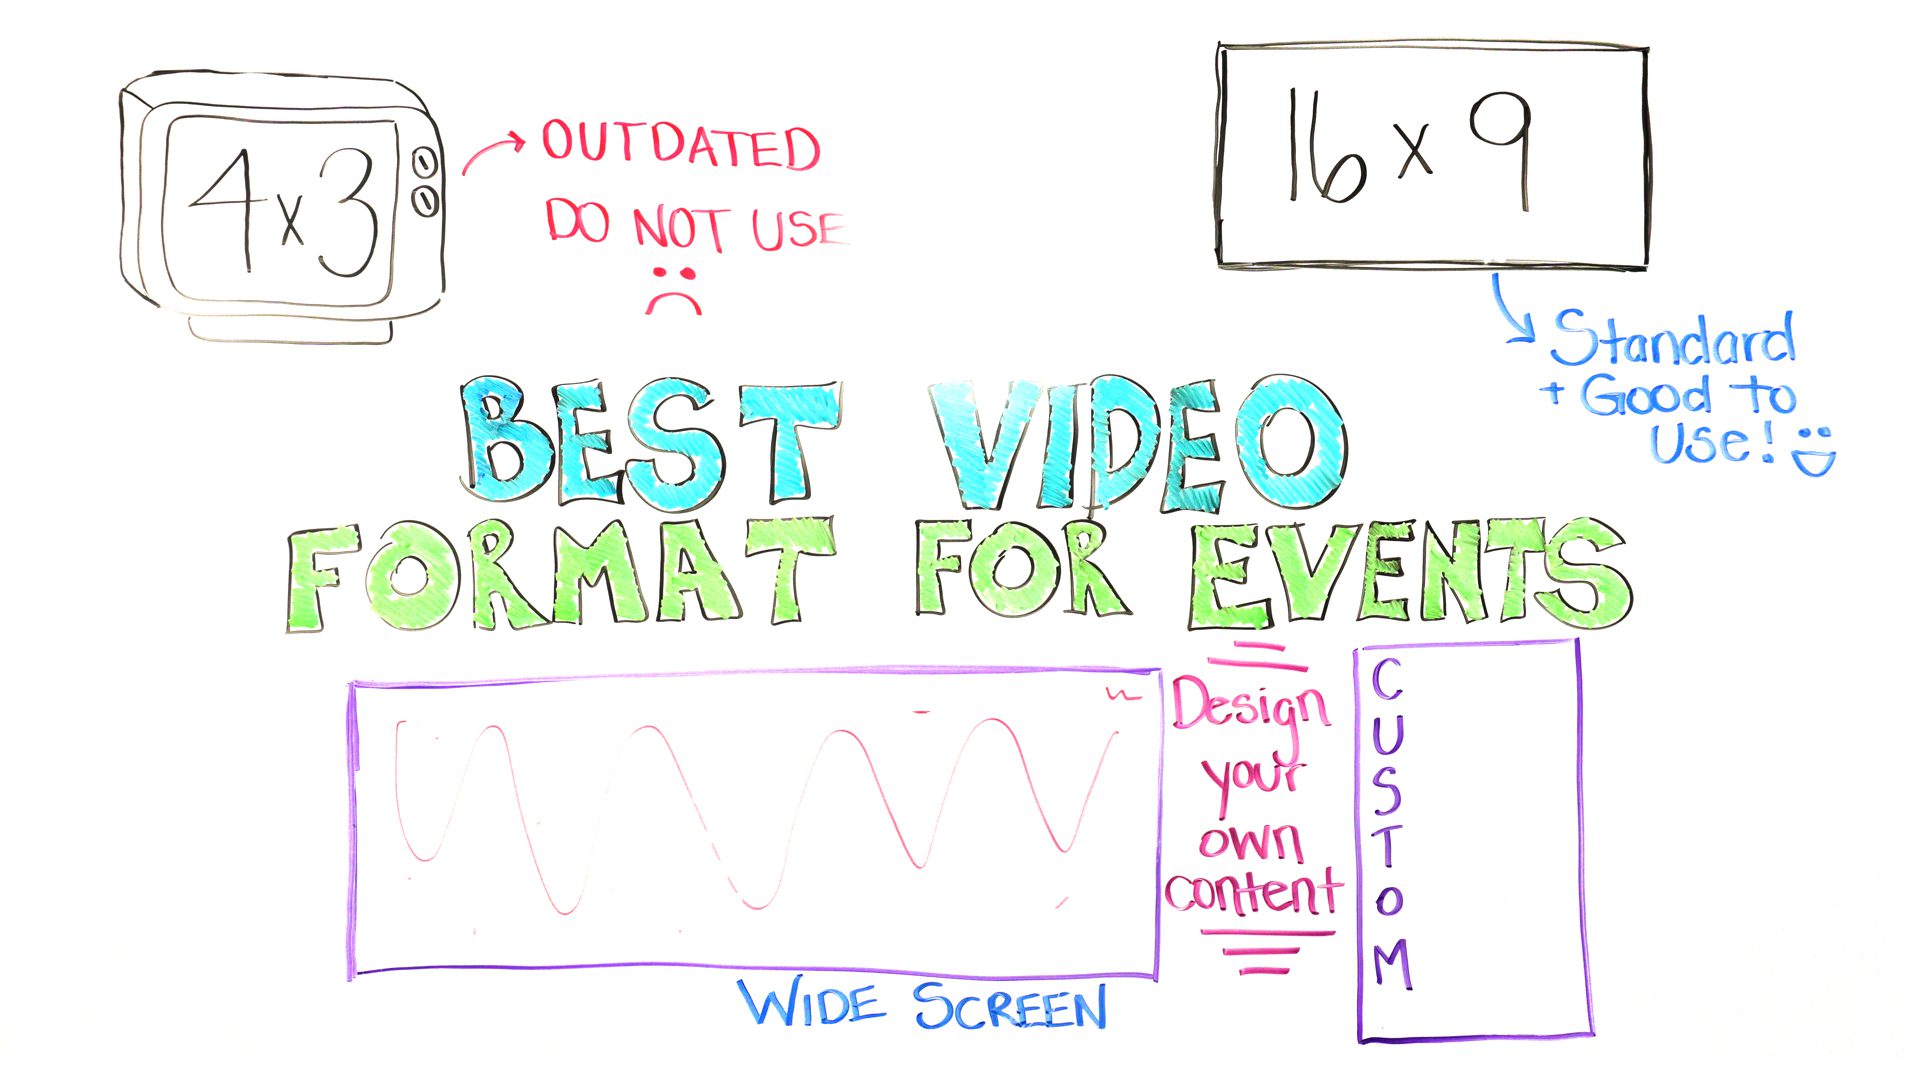 4x3
OUTDATED
DO NOT USE
16x9
Standard
+ Good to
Use!
BEST VIDEO
FORMAT FOR EVENTS
Design
your
own
content
WIDE SCREEN
CUSTOM